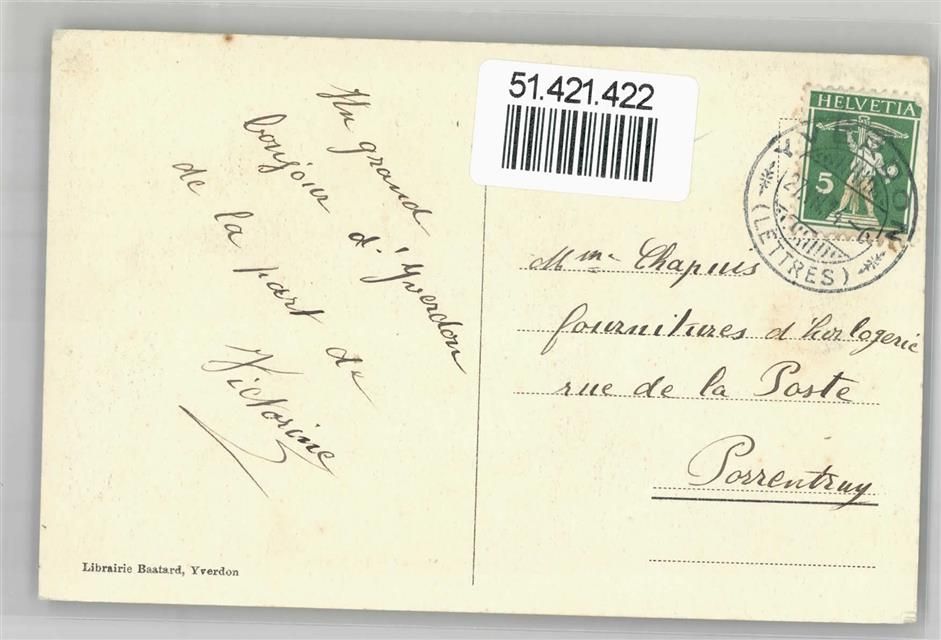 51.421.422
HELVETIA
5
YVERDON
(LETTRES)
Un grand
bonjour d'Yverdon
de la part de
Victorine
Mme Chapuis
fournitures d'horlogerie
rue de la Poste
Porrentruy
Librairie Baatard, Yverdon